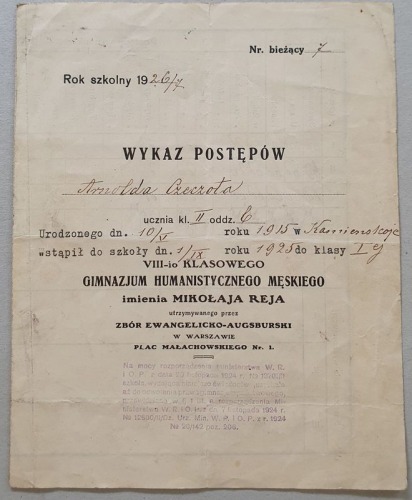 Nr. bieżący 7
Rok szkolny 1926/7
WYKAZ POSTĘPÓW
Arnolda Czeczota
ucznia kl. II oddz.
Urodzonego dn. 10/V roku 1915 w
wstąpił do szkoły dn. 1/IX roku 1925 do klasy I
VIII-io KLASOWEGO
GIMNAZJUM HUMANISTYCZNEGO MĘSKIEGO
imienia MIKOŁAJA REJA
utrzymywanego przez
ZBÓR EWANGELICKO-AUGSBURSKI
W WARSZAWIE
PLAC MAŁACHOWSKIEGO Nr. 1.
Na mocy rozporządzenia W. R.
i O. P. z dnia 1924 r. No
7 listopada 1924 r.
Min. W. R. i O. P. z r. 1924
No 20/142 poz. 206.